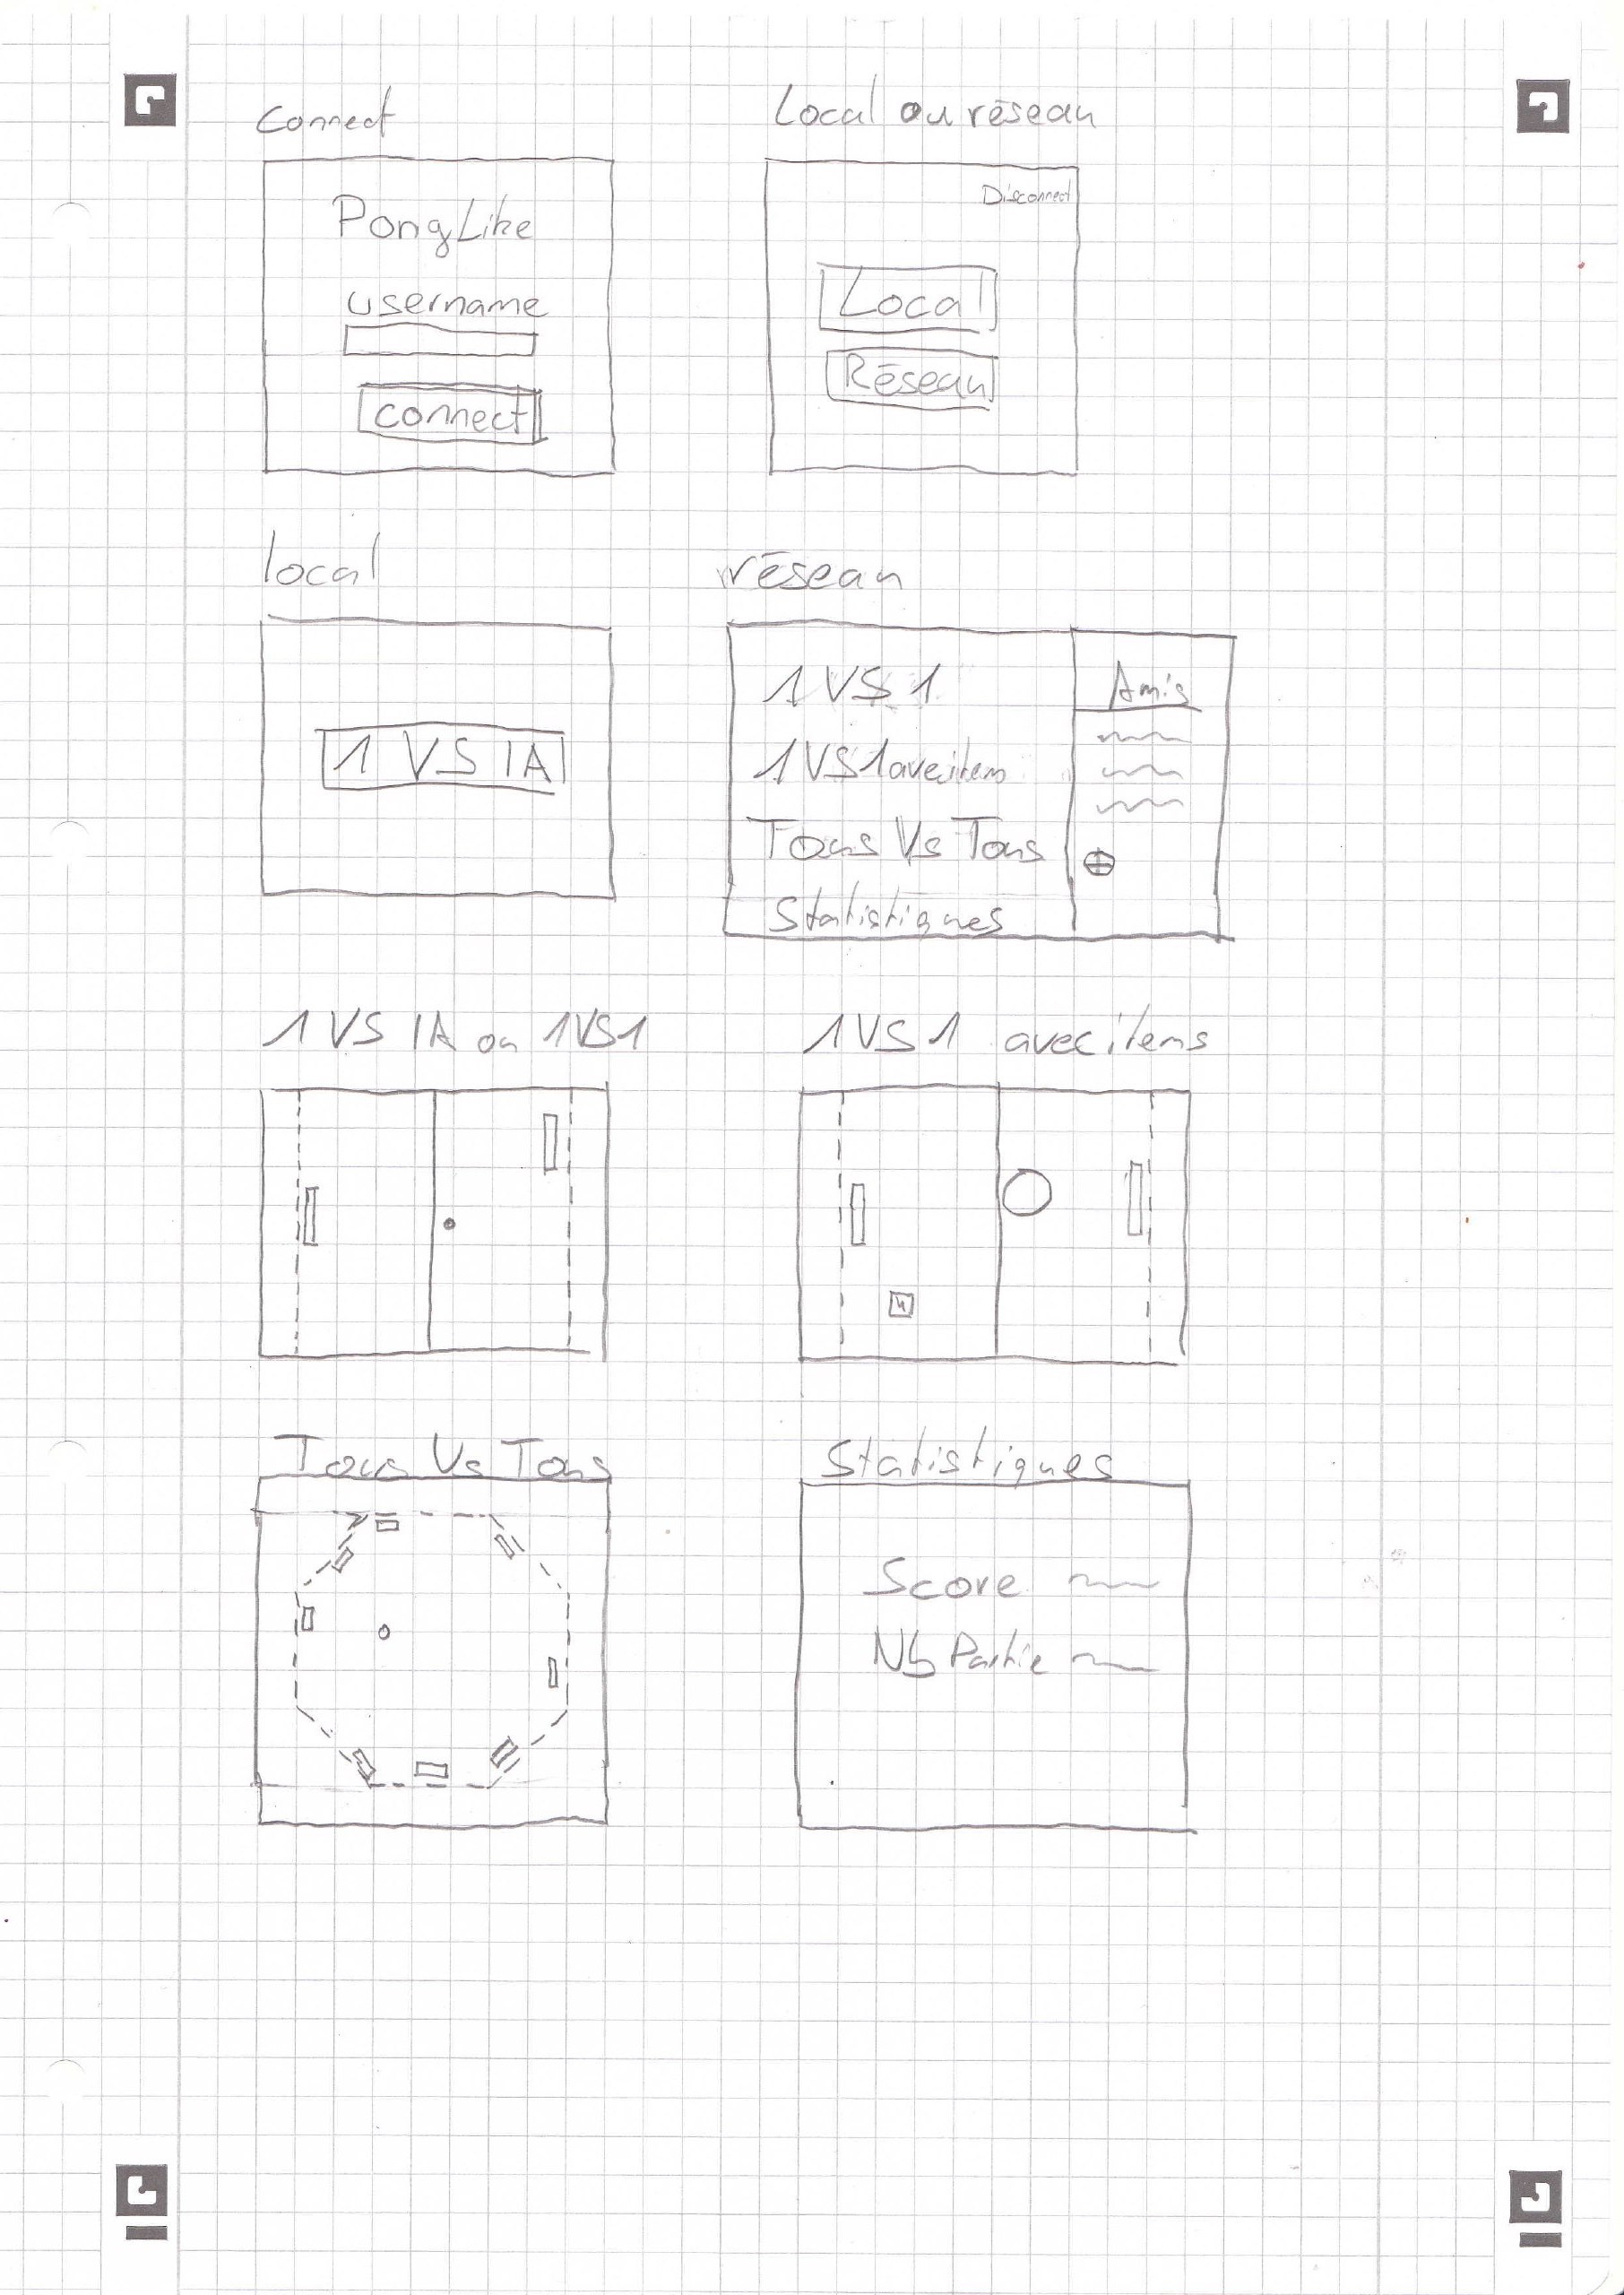 Connect
PongLike
username
connect
Local ou réseau
Disconnect
Local
Réseau
local
1 VS IA
réseau
1 VS 1
1 VS 1 avec item
Tous Vs Tous
Statistiques
Amis
1 VS IA ou 1VS1
1 VS 1 avec items
Tous Vs Tous
Statistiques
Score
Nb Partie